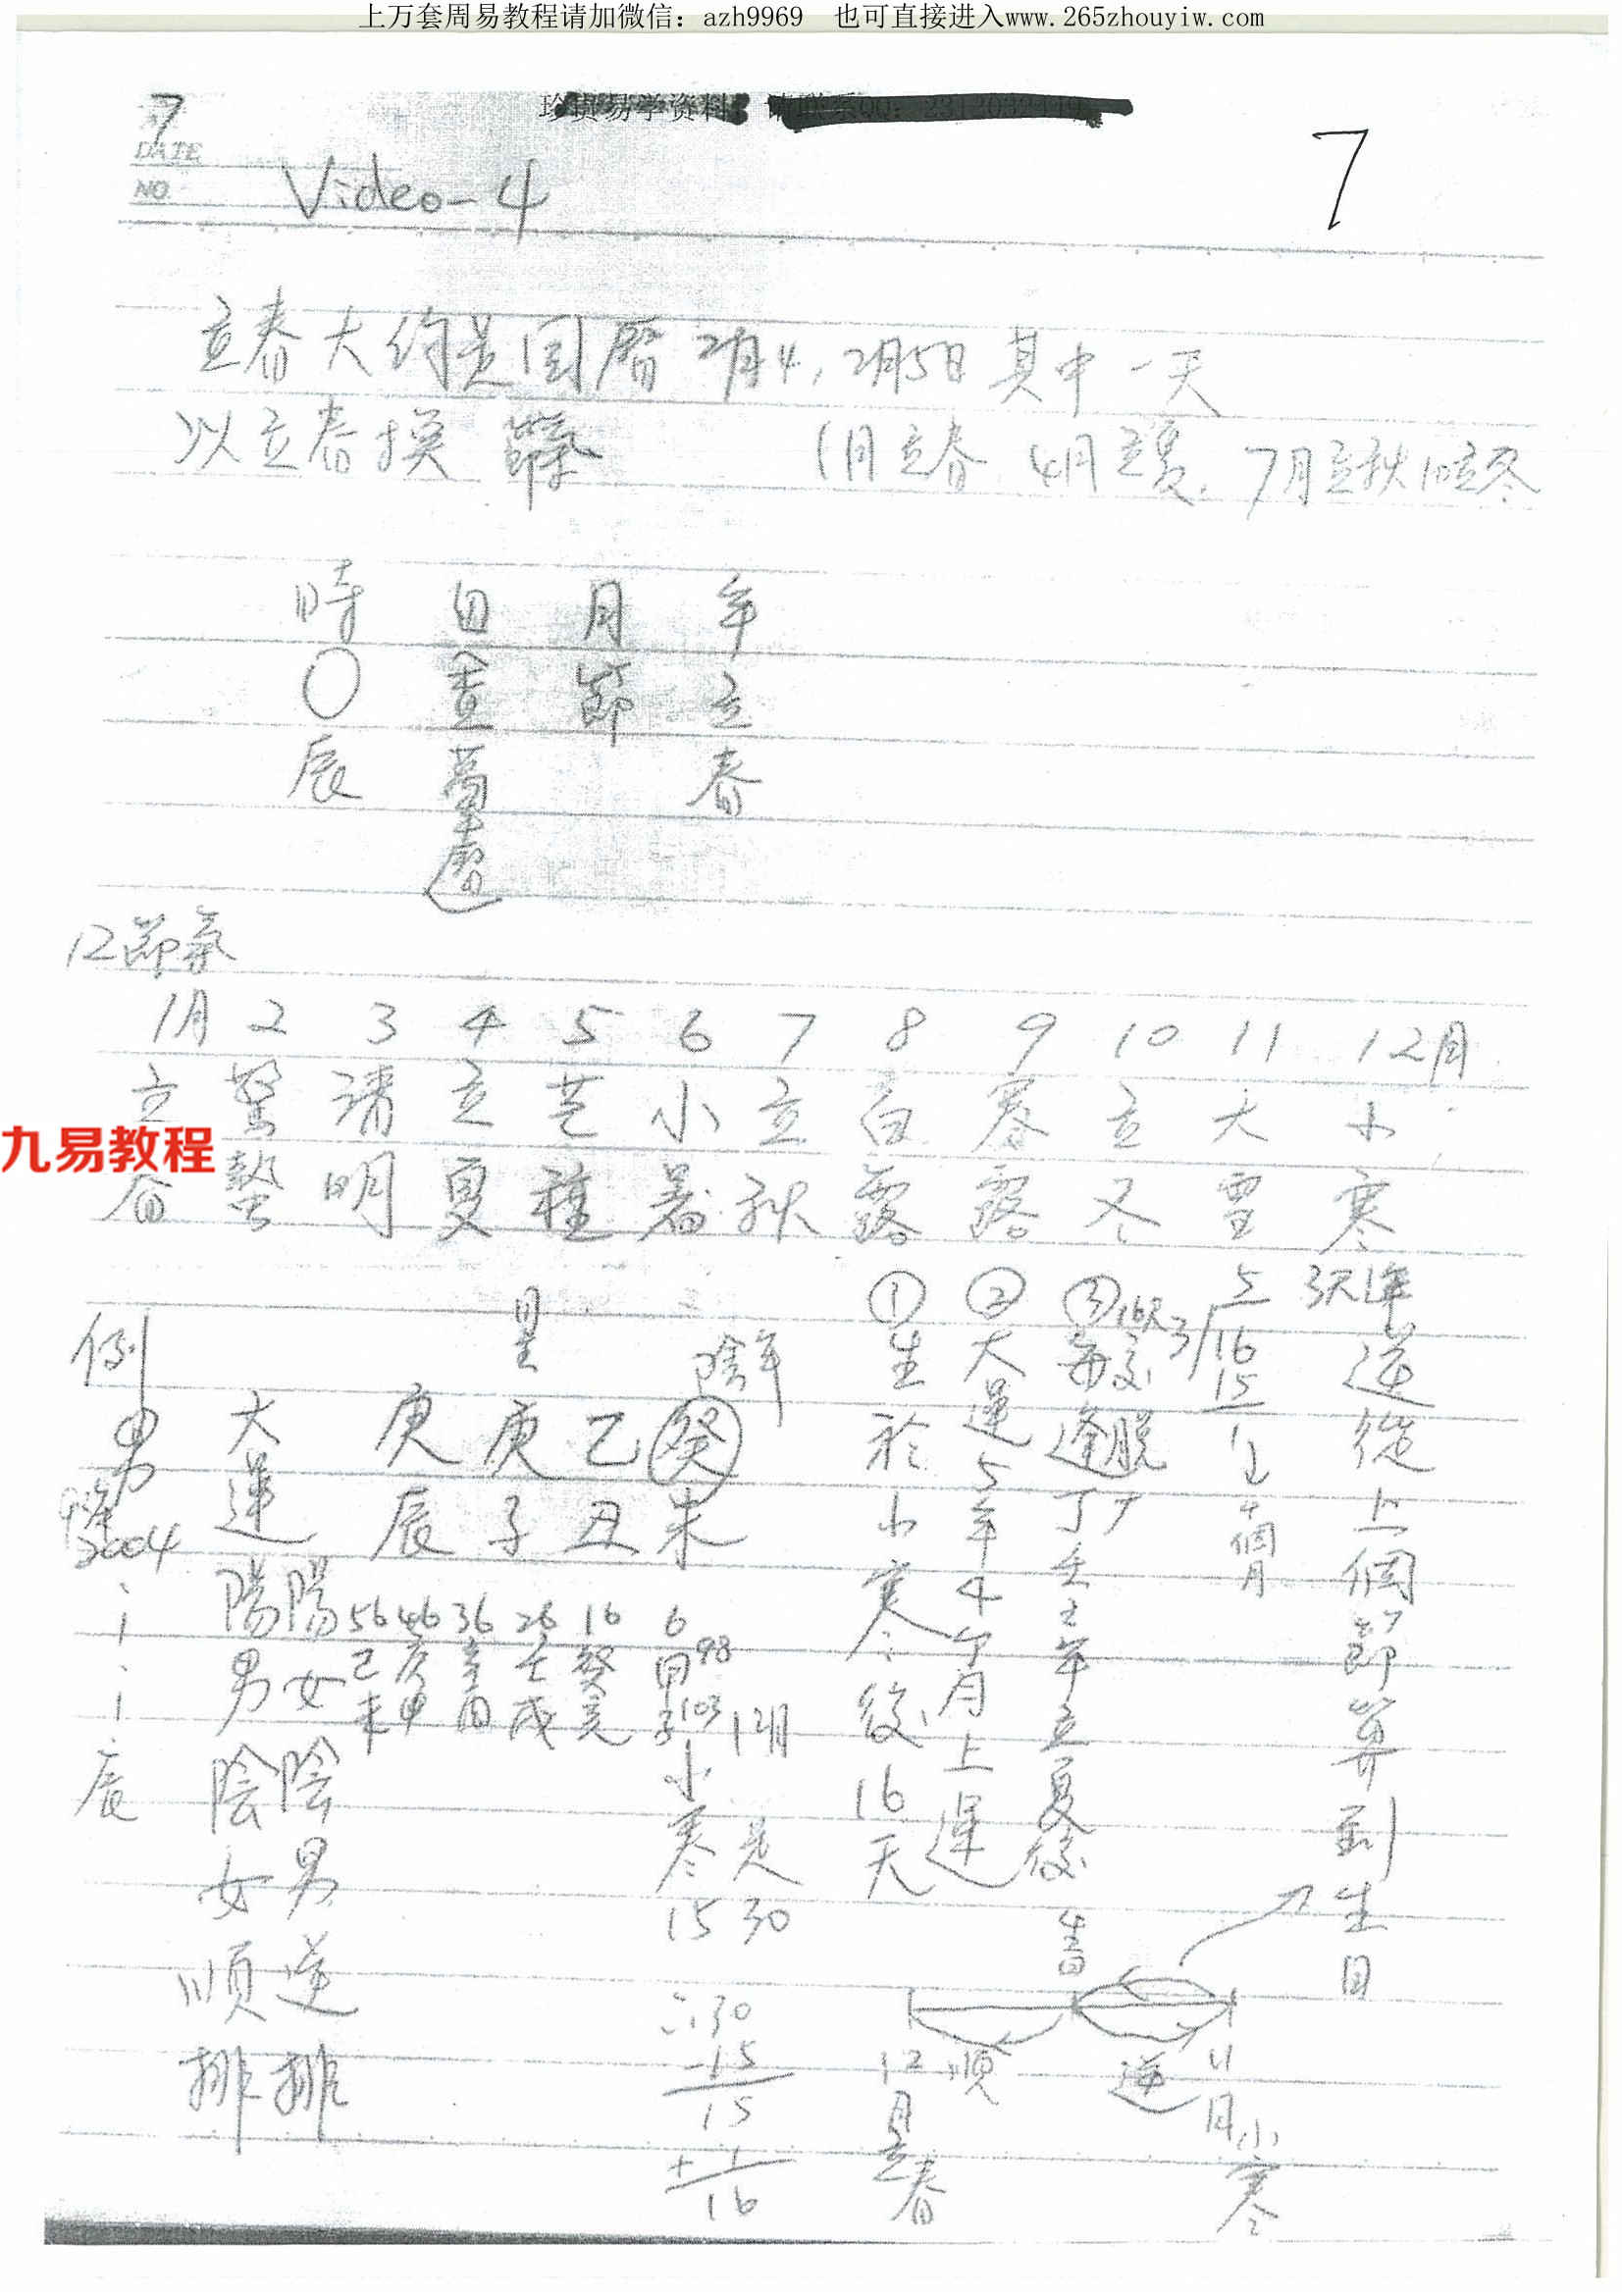 上万套周易教程请加微信：azh9969  也可直接进入www.265zhouyiw.com
7
DATE
NO.
Video-4
7
立春大約是国曆 2月4, 2月5日 其中一天
以立春換 節氣
1月立春 4月立夏, 7月立秋 10立冬
時 日 月 年
〇 查 節 立
辰 萬 春
年
曆
12節氣
1月 2 3 4 5 6 7 8 9 10 11 12月
立 驚 清 立 芒 小 立 白 寒 立 大 小
春 蟄 明 夏 種 暑 秋 露 露 冬 雪 寒
九易教程
3天1年
逆從上個節算到生日
5
3 16
15
1
4個月
③每逢
丁壬年立夏後
16天
交脫
②大運5年4個月上運
①生於小寒後16天
陰年
癸 己 庚 庚
未 丑 子 辰
例 男
2004
辰
大運
陽男陰女順排
陽女陰男逆排
6 16 26 36 46 56
甲子 癸亥 壬戌 辛酉 庚申 己未
98
103
12月
小寒是
15 30
∴30
-15
15
+ 1
16
生日
順
逆
12月
立春
11月
小寒